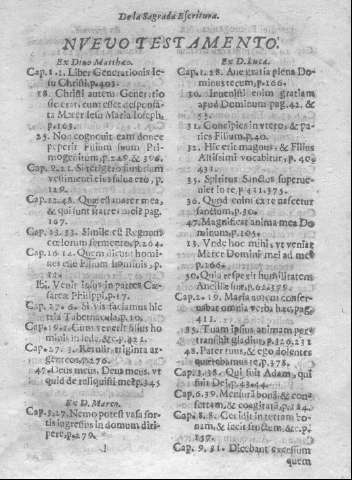 De la Sagrada Escritura.
NVEVO TESTAMENTO.
Ex Diuo Mattheo.
Cap. 1. 1. Liber Generationis Ie-
su Christi, p. 403.
18. Christi autem Generatio
sic erat: cum esset desponsa-
ta Mater Iesu Maria Ioseph,
p. 103.
25. Non cognouit eam donec
peperit Filium suum Pri-
mogenitum, p. 228. & 396.
Cap. 9. 21. Si tetigero fimbriam
vestimenti eius salua ero, p.
129.
Cap. 12. 48. Quae est mater mea,
& qui sunt fratres mei? pag.
167.
Cap. 13. 33. Simile est Regnum
coelorum fermento, p. 264.
Cap. 16 14. Quem dicunt homi-
nes esse Filium hominis, p.
Ex. Venit Iesus in partes Cae-
sareae Philippi, p. 17.
Cap. 17. 6. Si vis faciamus hic
tria Tabernacula, p. 10.
Cap. 19. Cum venerit filius ho-
minis in sede, &c. p. 421.
Cap. 27. 3. Retulit triginta ar-
genteos, p. 276.
47. Deus meus, Deus meus, vt
quid dereliquisti me? p. 345
Ex D. Marco.
Cap. 3. 27. Nemo potest vasa for-
tis ingressus in domum diri-
pere, p. 279.
Ex D. Luca.
Cap. 1. 28. Aue gratia plena Do-
minus tecum, p. 166.
30. Inuenisti enim gratiam
apud Dominum pag. 42. &
53.
31. Concipies in vtero, & pa-
ries Filium, p. 40.
32. Hic erit magnus, & Filius
Altissimi vocabitur, p. 40
431.
35. Spiritus Sanctus superue-
niet in te, p. 431. 375.
36. Quod enim ex te nascetur
sanctum, p. 30.
47. Magnificat anima mea Do-
minum, p. 105.
43. Vnde hoc mihi, vt veniat
Mater Domini mei ad me?
p. 166.
50. Quia respexit humilitatem
Ancillae suae, p. 62. 399.
Cap. 2. 19. Maria autem conser-
uabat omnia verba haec, pag.
411.
35. Tuam ipsius animam per-
transibit gladius, p. 326. 231
48. Pater tuus, & ego dolentes
quaerebamus te, p. 378.
Cap. 3. 38. Qui fuit Adam, qui
fuit Dei, p. 43. 44.
Cap. 6. 39. Mensuram bonam & con-
fertam, & coagitatam, p. 124.
Cap. 8. 8. Cecidit in terram bo-
nam, & fecit fructum, &c. p.
159.
Cap. 9. 31. Dicebant excessum
quem